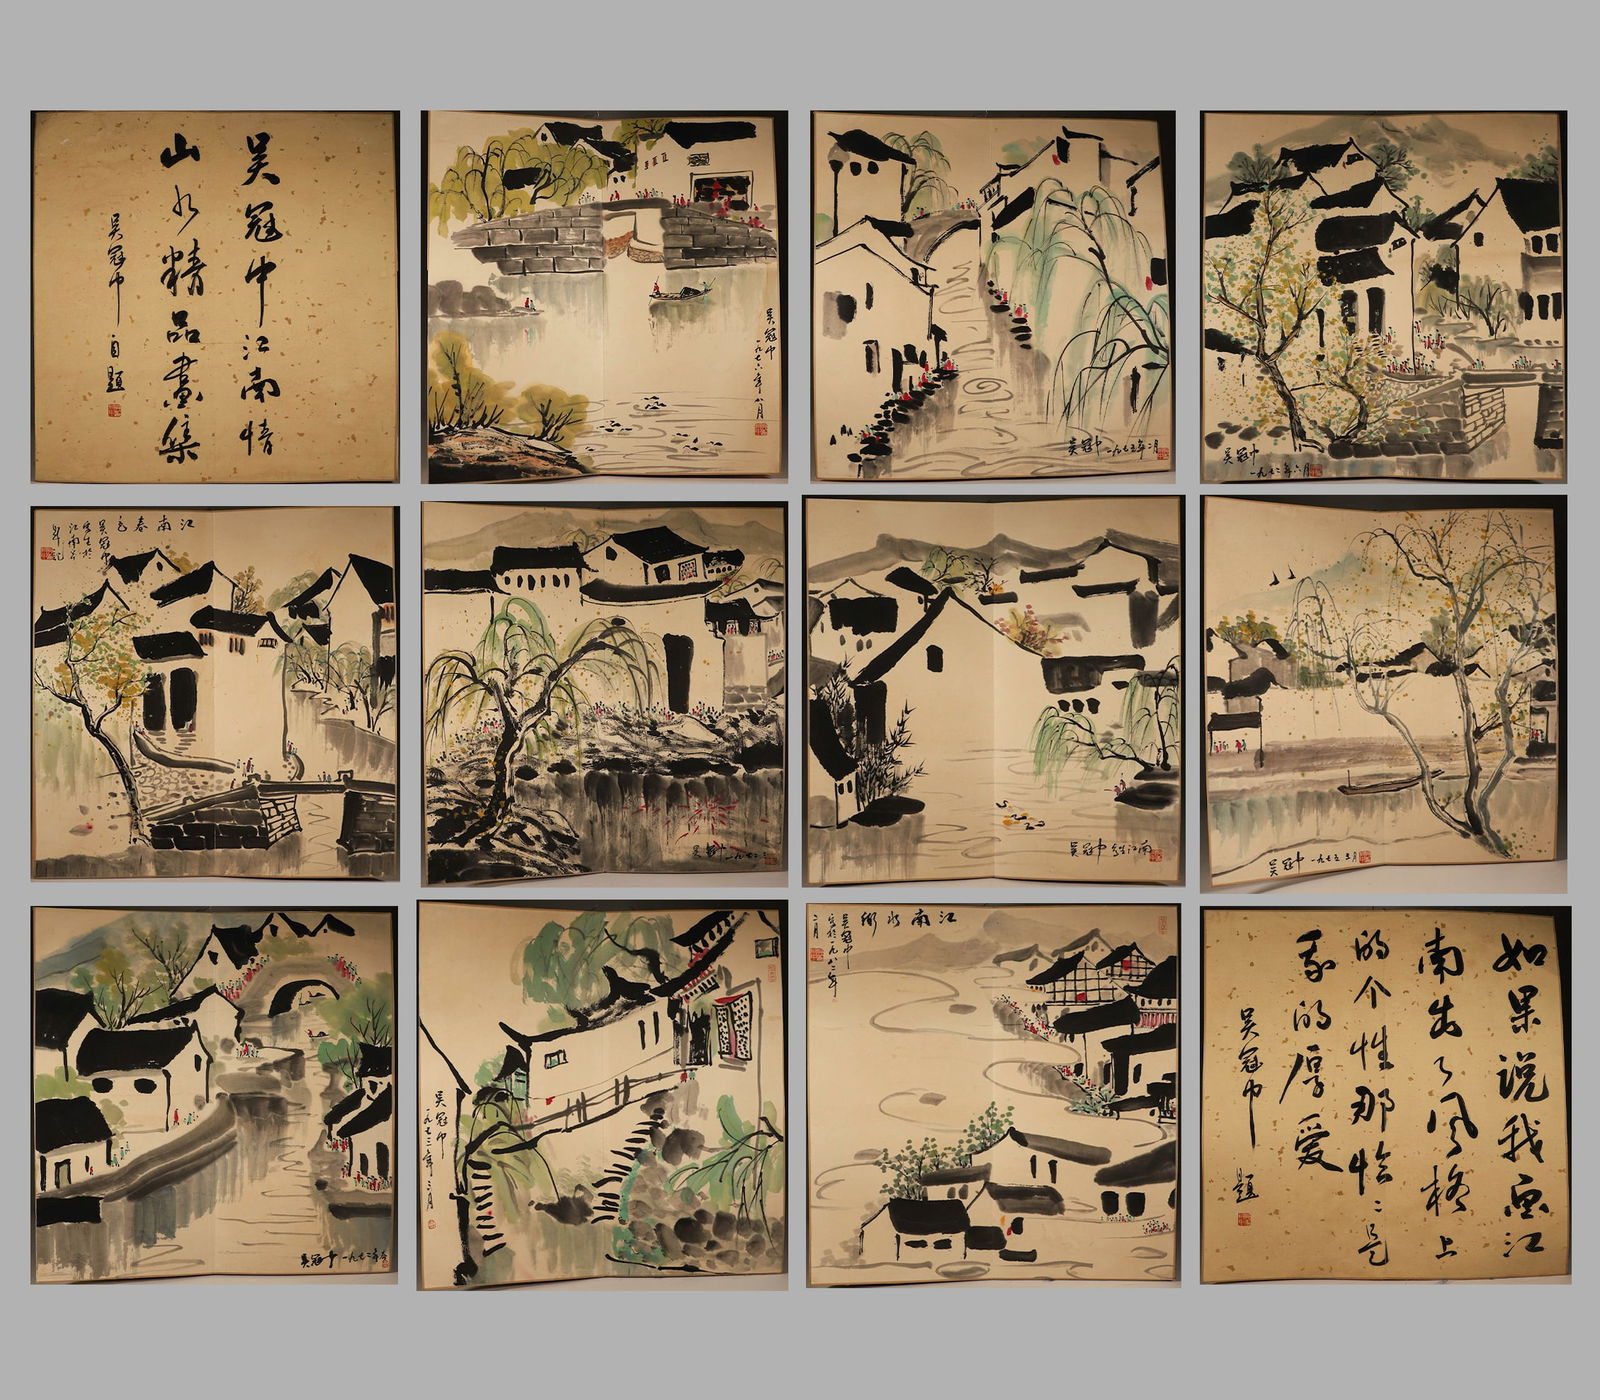 吴冠中江南情
山水精品画集
吴冠中自题
吴冠中
一九七六年八月
吴冠中一九七五年二月
吴冠中
一九七二年六月
江南春色
吴冠中
写生于
江南
吴冠中
一九七二
吴冠中写生江南
吴冠中一九七五三月
吴冠中一九七二年冬
吴冠中
一九七三年三月
江南水乡
吴冠中
写于一九八二年
二月
如果说我画江
南出了风格上
的个性那恰恰是
我的厚爱
吴冠中题